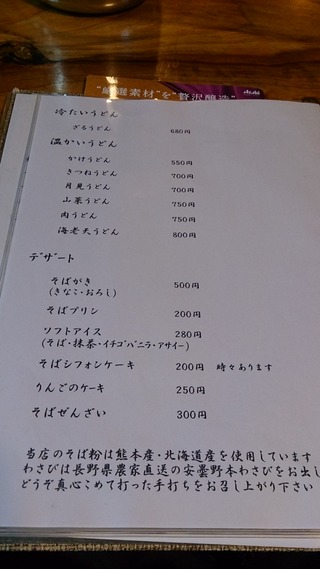 "厳選素材"を"贅沢醸造"
冷たいうどん
ざるうどん 680円
温かいうどん
かけうどん 550円
きつねうどん 700円
月見うどん 700円
山菜うどん 750円
肉うどん 750円
海老天うどん 800円
デザート
そばがき 500円
(きなこ・おろし)
そばプリン 200円
ソフトアイス 280円
(そば・抹茶・イチゴバニラ・アサイー)
そばシフォンケーキ 200円 時々あります
りんごのケーキ 250円
そばぜんざい 300円
当店のそば粉は熊本産・北海道産を使用しています
わさびは長野県農家直送の安曇野本わさびをお出し
どうぞ真心こめて打った手打ちをお召し上がり下さい